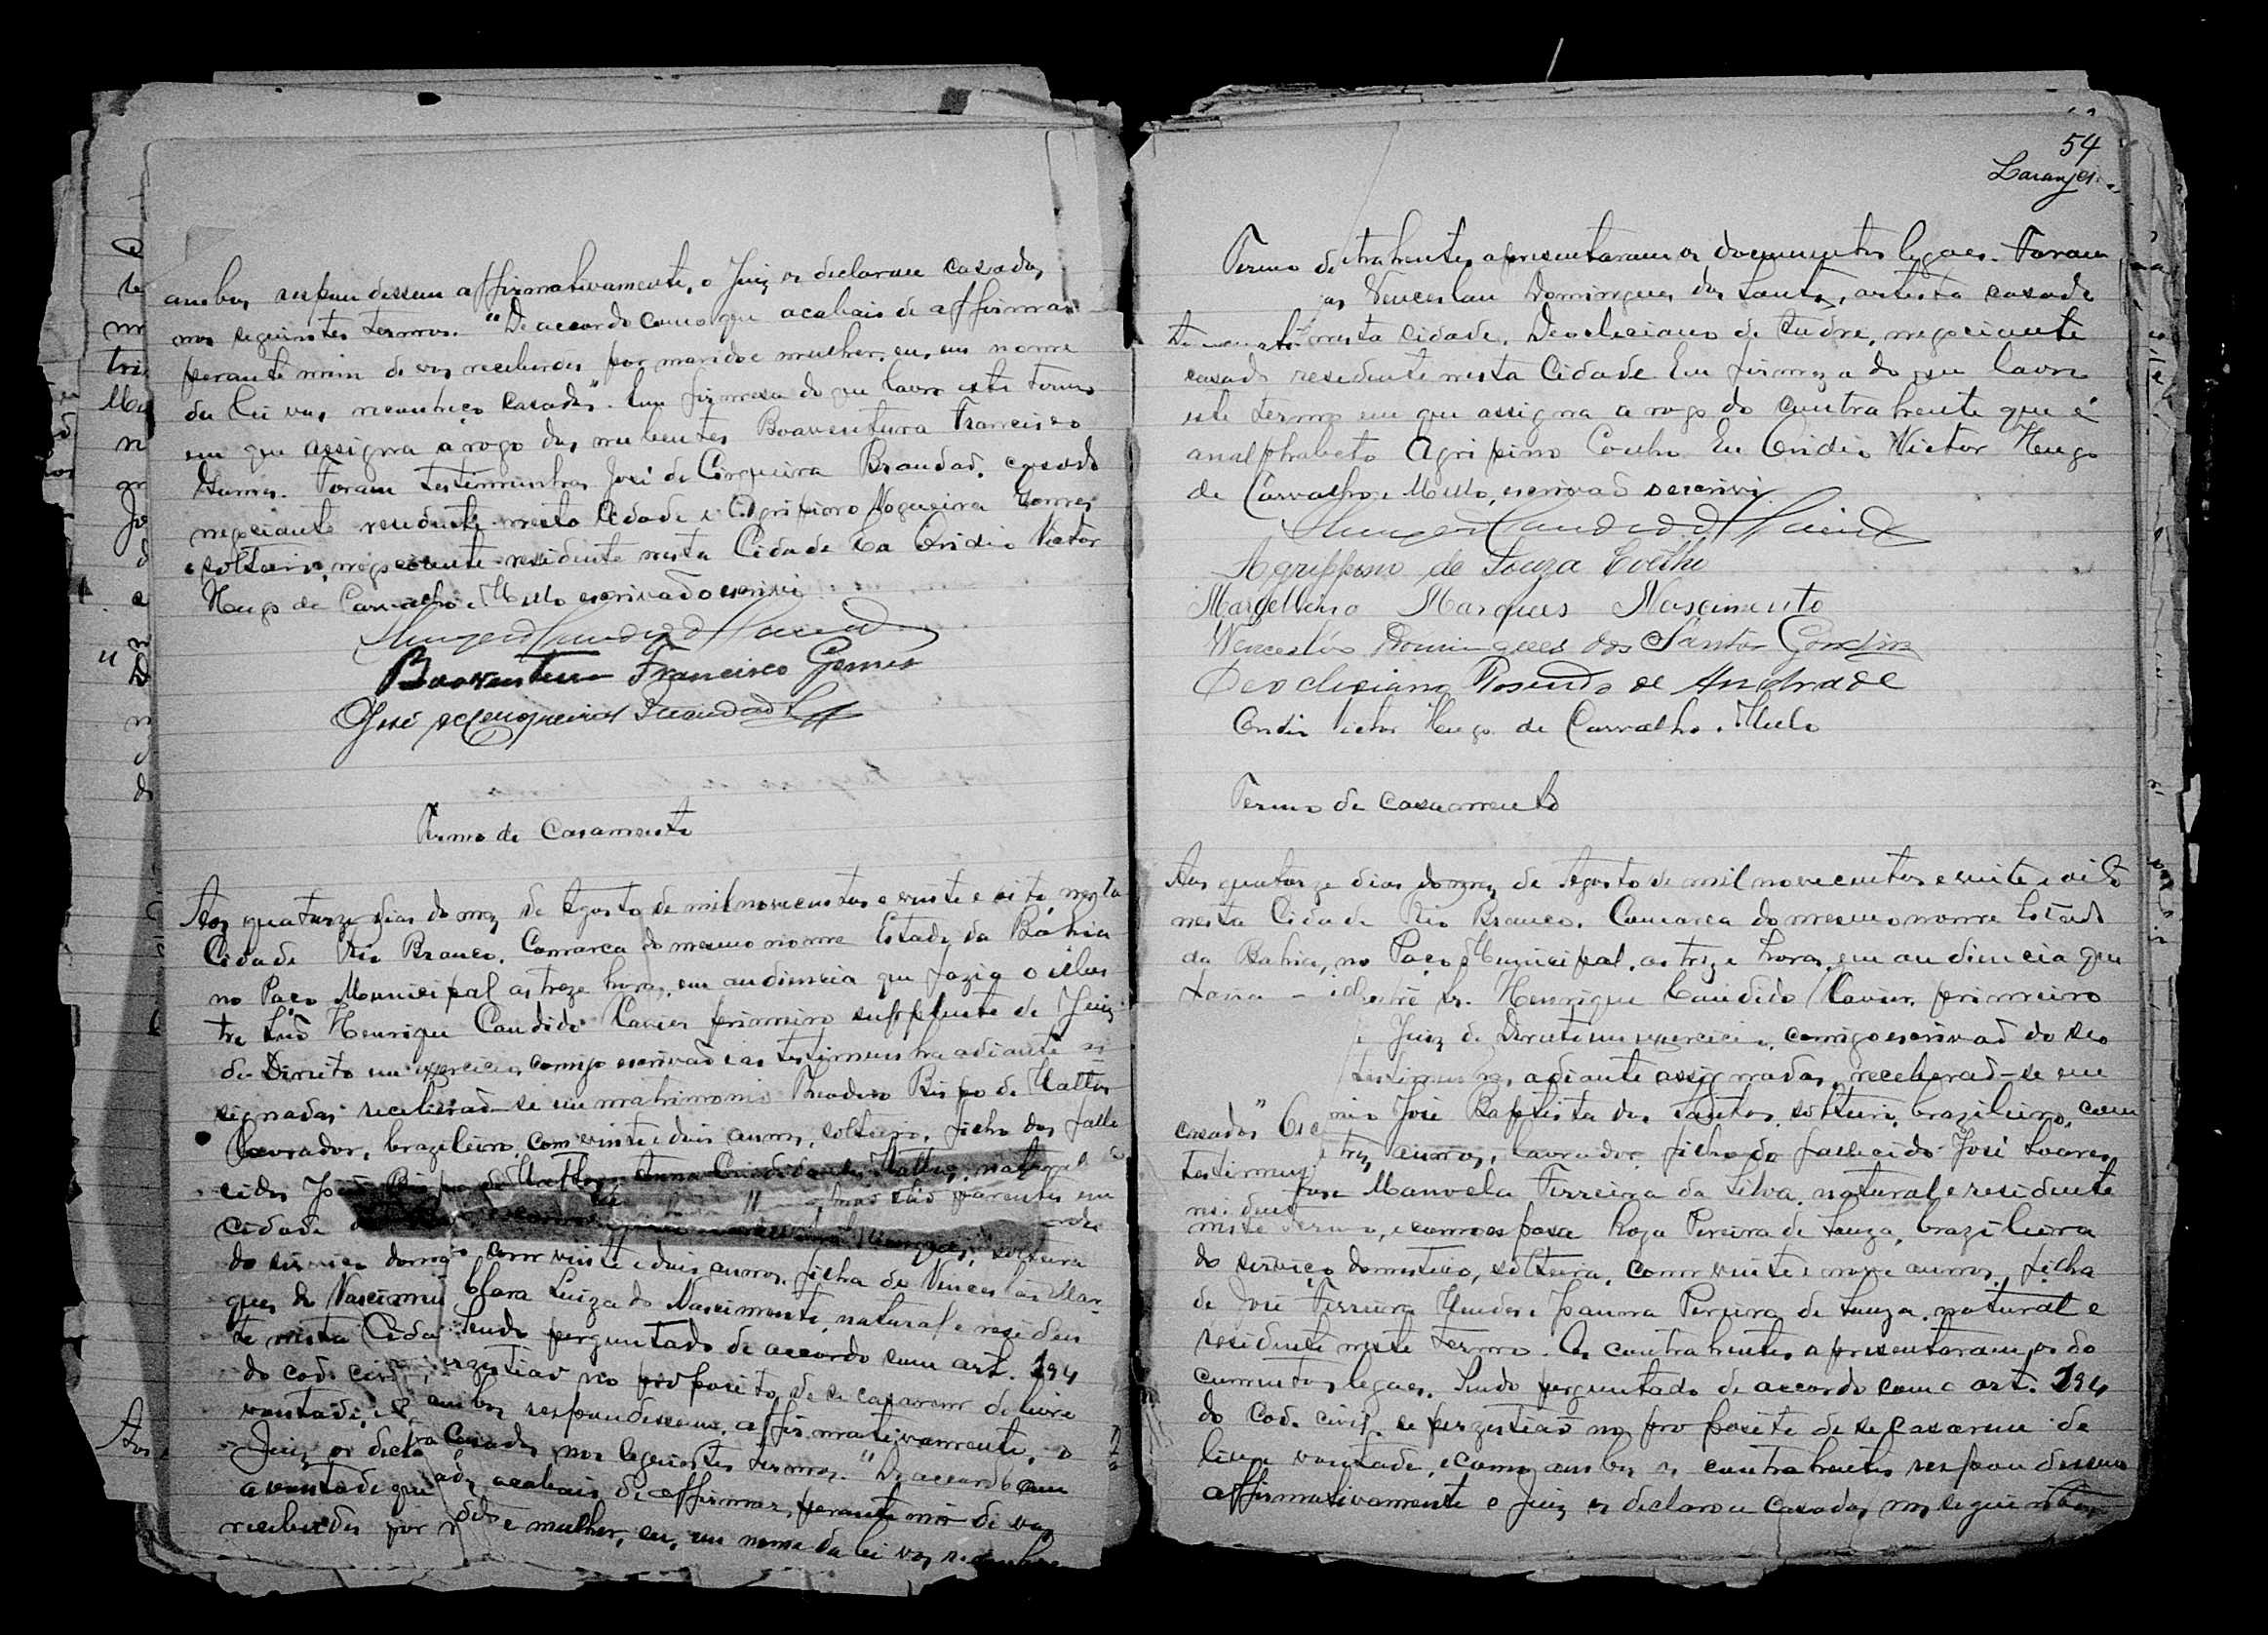 ambos respondessem affirmativamente, o Juiz os declarou casados
nos seguintes termos. "De accordo com o que acabais de affirmar
perante mim de vos receberdes por marido e mulher, eu, em nome
da lei vos reconheço casados". Em firmesa do que lavro este termo
em que assigna a rogo dos nubentes Boaventura Francisco
Gomes. Foram testimunhas José de Cirqueira Brandaõ, casado
negociante residente nesta Cidade e Agripino Nogueira Gomes
solteiro, negociante residente nesta Cidade Eu Ovidio Victor
Hugo de Carvalho e Mello escrivaõ o escrivi
Boaventura Francisco Gomes
José de Cerqueira Brandaõ
Termo de Casamento
Aos quatorze dias do mez de Agosto de mil novecentos e vinte e oito, nesta
Cidade Rio Branco, Comarca do mesmo nome Estado da Bahia
no Paço Municipal as treze horas, em audiencia que fazia o illus
tre Henrique Candido Xavier primeiro supplente de Juiz
de Direito em exercicio, comigo escrivaõ e as testimunhas adiante as
signadas receberaõ-se em matrimonio Theodoro Bispo de Mattos
Lavrador, brazileiro, com vinte e dois annos, solteiro, filho dos falle
cidos José Bispo de Mattos Anna Candida de Mattos, natural
cidade naõ saõ parentes em
do serviço dome com vinte e dois annos, filha de Venceslau Mar
ques do Nascimen Clara Luiza do Nascimento, natural e residen
te nesta Cida Sendo perguntado de accordo com art. 194
do cod. civi perzistiaõ no proposito de se casarem de livre
vontade, e ambos respondessem affirmativamente, o
Juiz os decla casados nos seguintes termos. "De accordo com
a vontade que acabais de affirmar, perante mim de vos
receberdes por e mulher, eu, em nome da lei vos reconheço
54
Laranjei
Termo de trahentes apresentaram os documentos legaes. Foram
as Venceslau Domingues dos Santos, artista casado
nesta cidade, Deocleciano de Andre, negociante
casado residente nesta Cidade Em firmeza do que lavro
este termo em que assigna a rogo do contrahente que é
analphabeto Agripino Coelho Eu Ovidio Victor Hugo
de Carvalho e Mello, escrivaõ o escrivi
Agrippino de Souza Coelho
Marcellino Marques Nascimento
Wencesláo Domingues dos Santos Gondim
Deocleciano Rosendo de Andrade
Ovidio Victor Hugo de Carvalho e Mello
Termo de casamento
Aos quatorze dias do mez de Agosto de mil novecentos e vinte e oito
nesta Cidade Rio Branco, Comarca do mesmo nome Estado
da Bahia, no Paço Municipal, as treze horas, em audiencia que
fazia o illustre Sr. Henrique Candido Xavier, primeiro
Juiz de Direito em exercicio, comigo escrivaõ do seo
testimunhas, adiante assignadas, receberaõ-se em
casados" Em nio José Baptista dos Santos, solteiro, brazileiro, com
testimun tres annos, lavrador filho do fallecido José Soares
residente Manoela Ferreira da Silva, natural e residente
neste termo, e como esposa Roza Pereira de Souza, brazileira
do serviço domestico, solteira, com vinte e nove annos, filha
de José Ferreira Mendes e Joanna Pereira de Souza, natural e
residente neste termo. Os contrahentes apresentaram os do
cumentos legaes. Sendo perguntado de accordo com o art. 194
do Cod. civil, se perzistiaõ no proposito de se casarem de
livre vontade, e como ambos os contrahentes respondessem
affirmativamente o Juiz os declarou casados nos seguintes